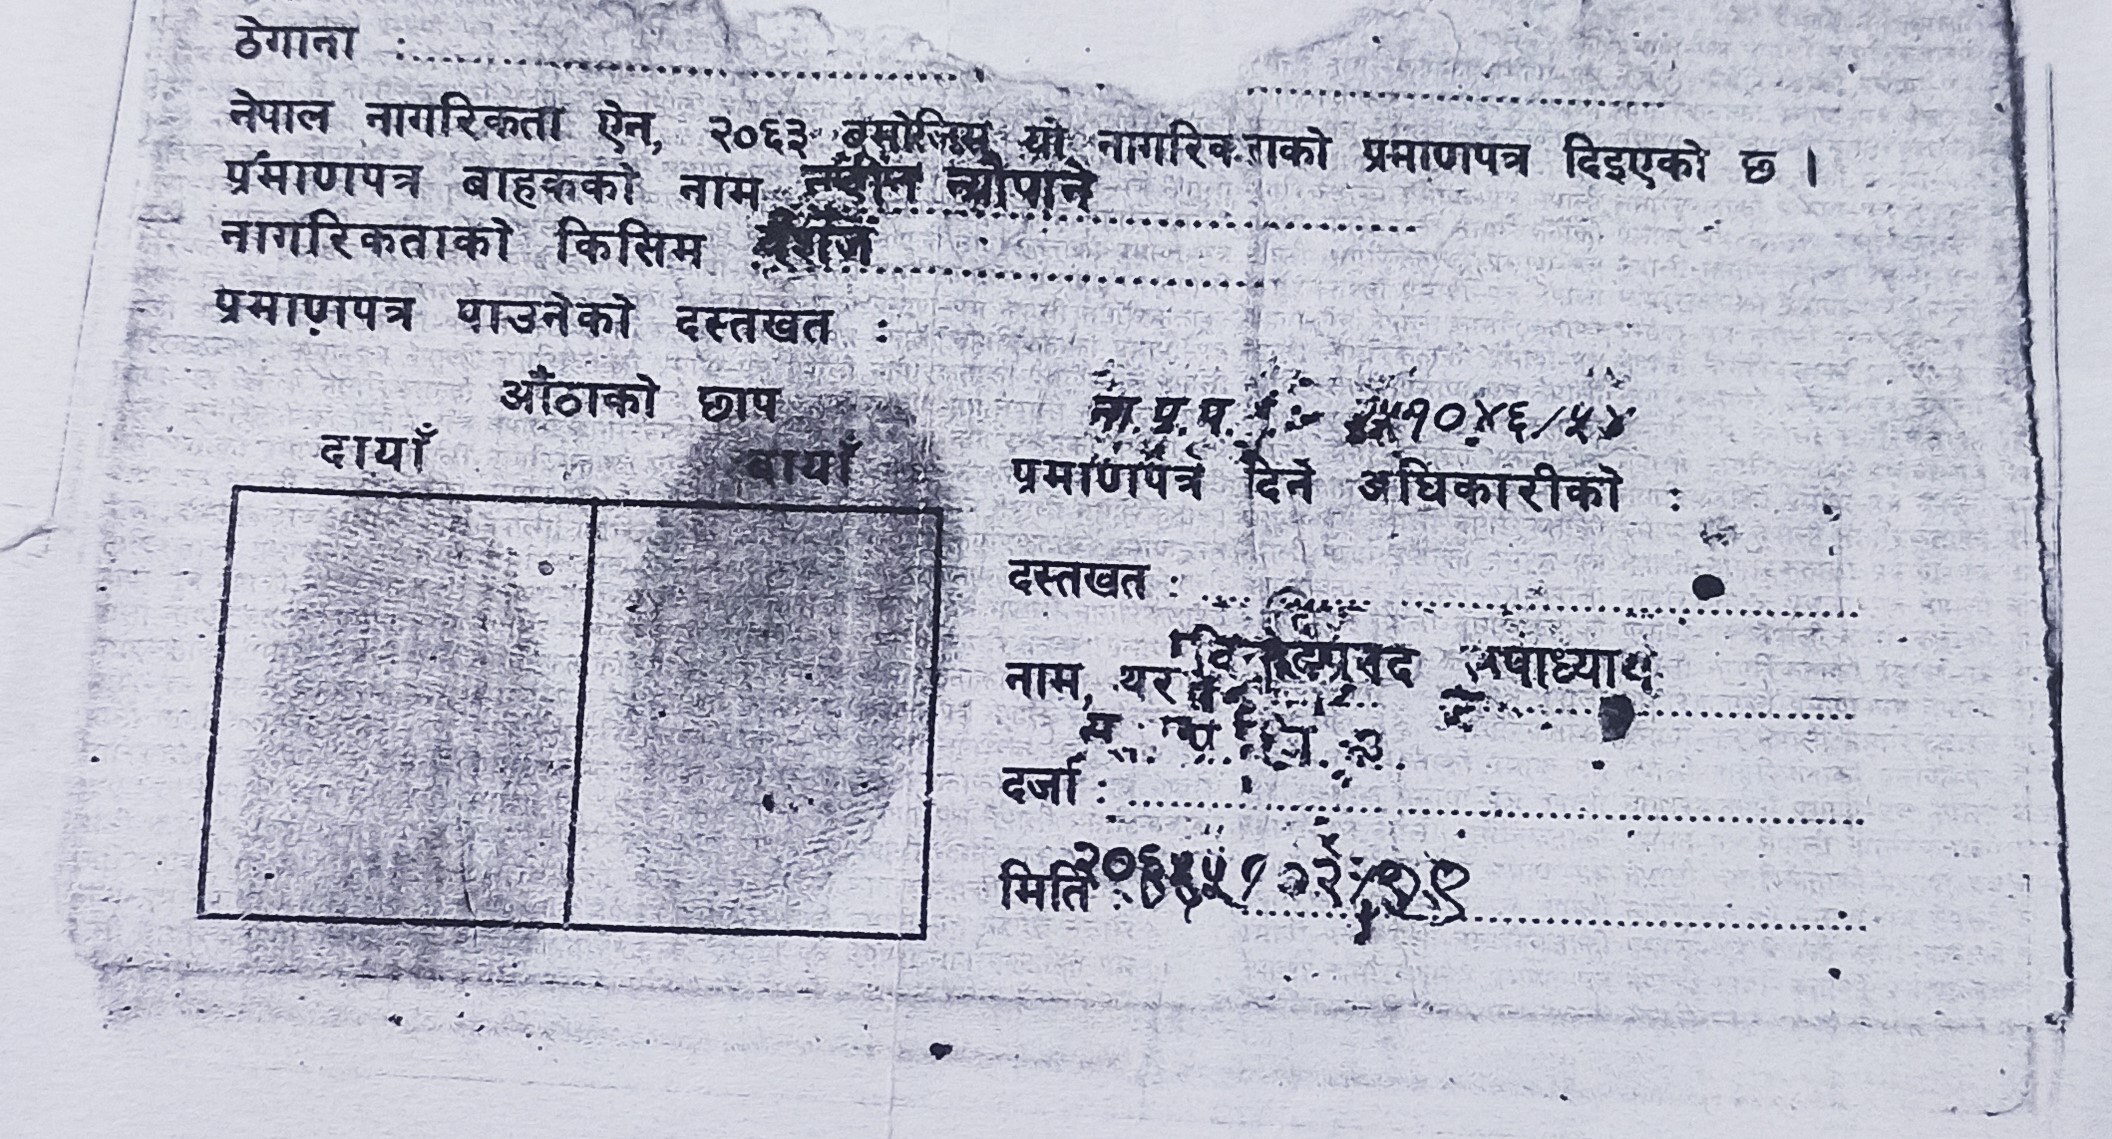 ठेगाना :
नेपाल नागरिकता ऐन, २०६३ बमोजिम यो नागरिकताको प्रमाणपत्र दिइएको छ ।
प्रमाणपत्र बाहकको नाम नवीन न्यौपाने
नागरिकताको किसिम वंशज
प्रमाणपत्र पाउनेको दस्तखत :
औंठाको छाप
दायाँ बायाँ
ना.प्र.प.
प्रमाणपत्र दिने अधिकारीको :
दस्तखत :
नाम, थर उपाध्याय
दर्जा :
मिति :